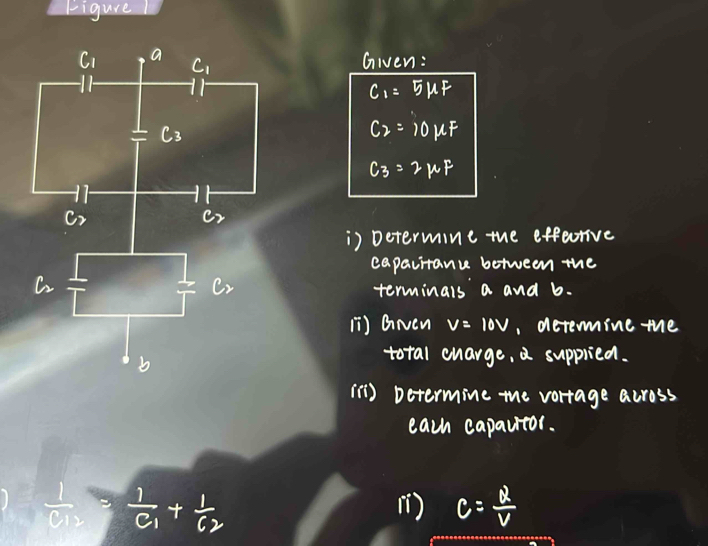 Figure 1
C1 a C1
C3
C2 C2
C2 C2
b
Given:
C1 = 5μF
C2 = 10μF
C3 = 2μF
i) Determine the effective
capacitance between the
terminals a and b.
ii) Given V = 10V, determine the
total charge, Q supplied.
iii) Determine the voltage across
each capacitor.
) 1/C12 = 1/C1 + 1/C2
ii) C = Q/V